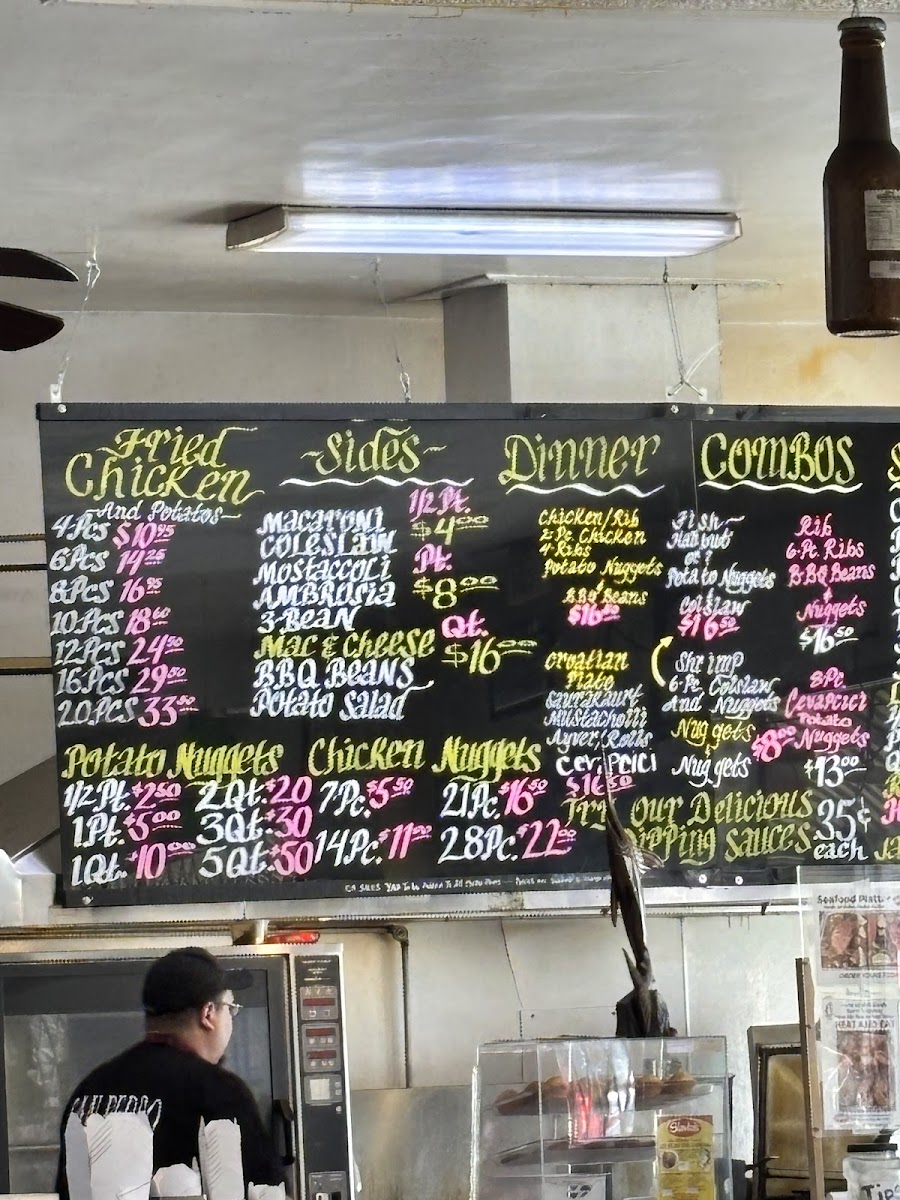 ~Fried
Chicken
~And Potatoes~
4Pcs $10.95
6Pcs 14.25
8Pcs 16.95
10Pcs 18.60
12Pcs 24.50
16Pcs 29.50
20Pcs 33.50
~Sides~
Macaroni
Coleslaw
Mostaccoli
Ambrosia
3-Bean
Mac & Cheese
BBQ Beans
Potato Salad
1/2 Pt.
$4.00
Pt.
$8.00
Qt.
$16.00
Dinner
Chicken/Rib
2-Pc Chicken
4-Ribs
Potato Nuggets
&
BBQ Beans
Croatian
Plate
Saurakaurt
Mustacholli
Ayver, Rolls
Cevapcici
Combos
Fish~
Halibut
or
Potato Nuggets
&
Colslaw
$16.50
Shrimp
6-Pc, Colslaw
And Nuggets
Nuggets
&
Nuggets
$8.00
Rib
6-Pc Ribs
B-BQ Beans
&
Nuggets
$16.50
8Pc
Cevapcici
Potato
Nuggets
$13.00
Potato Nuggets
1/2 Pt. $2.50
1 Pt. $5.00
1 Qt. $10.00
2 Qt. $20
3 Qt. $30
5 Qt. $50
Chicken Nuggets
7Pc. $5.50
14Pc. $11.00
21Pc. $16.50
28Pc. $22.00
Try Our Delicious
Dipping Sauces
35¢
each
San Pedro
Seafood Platt
Tips